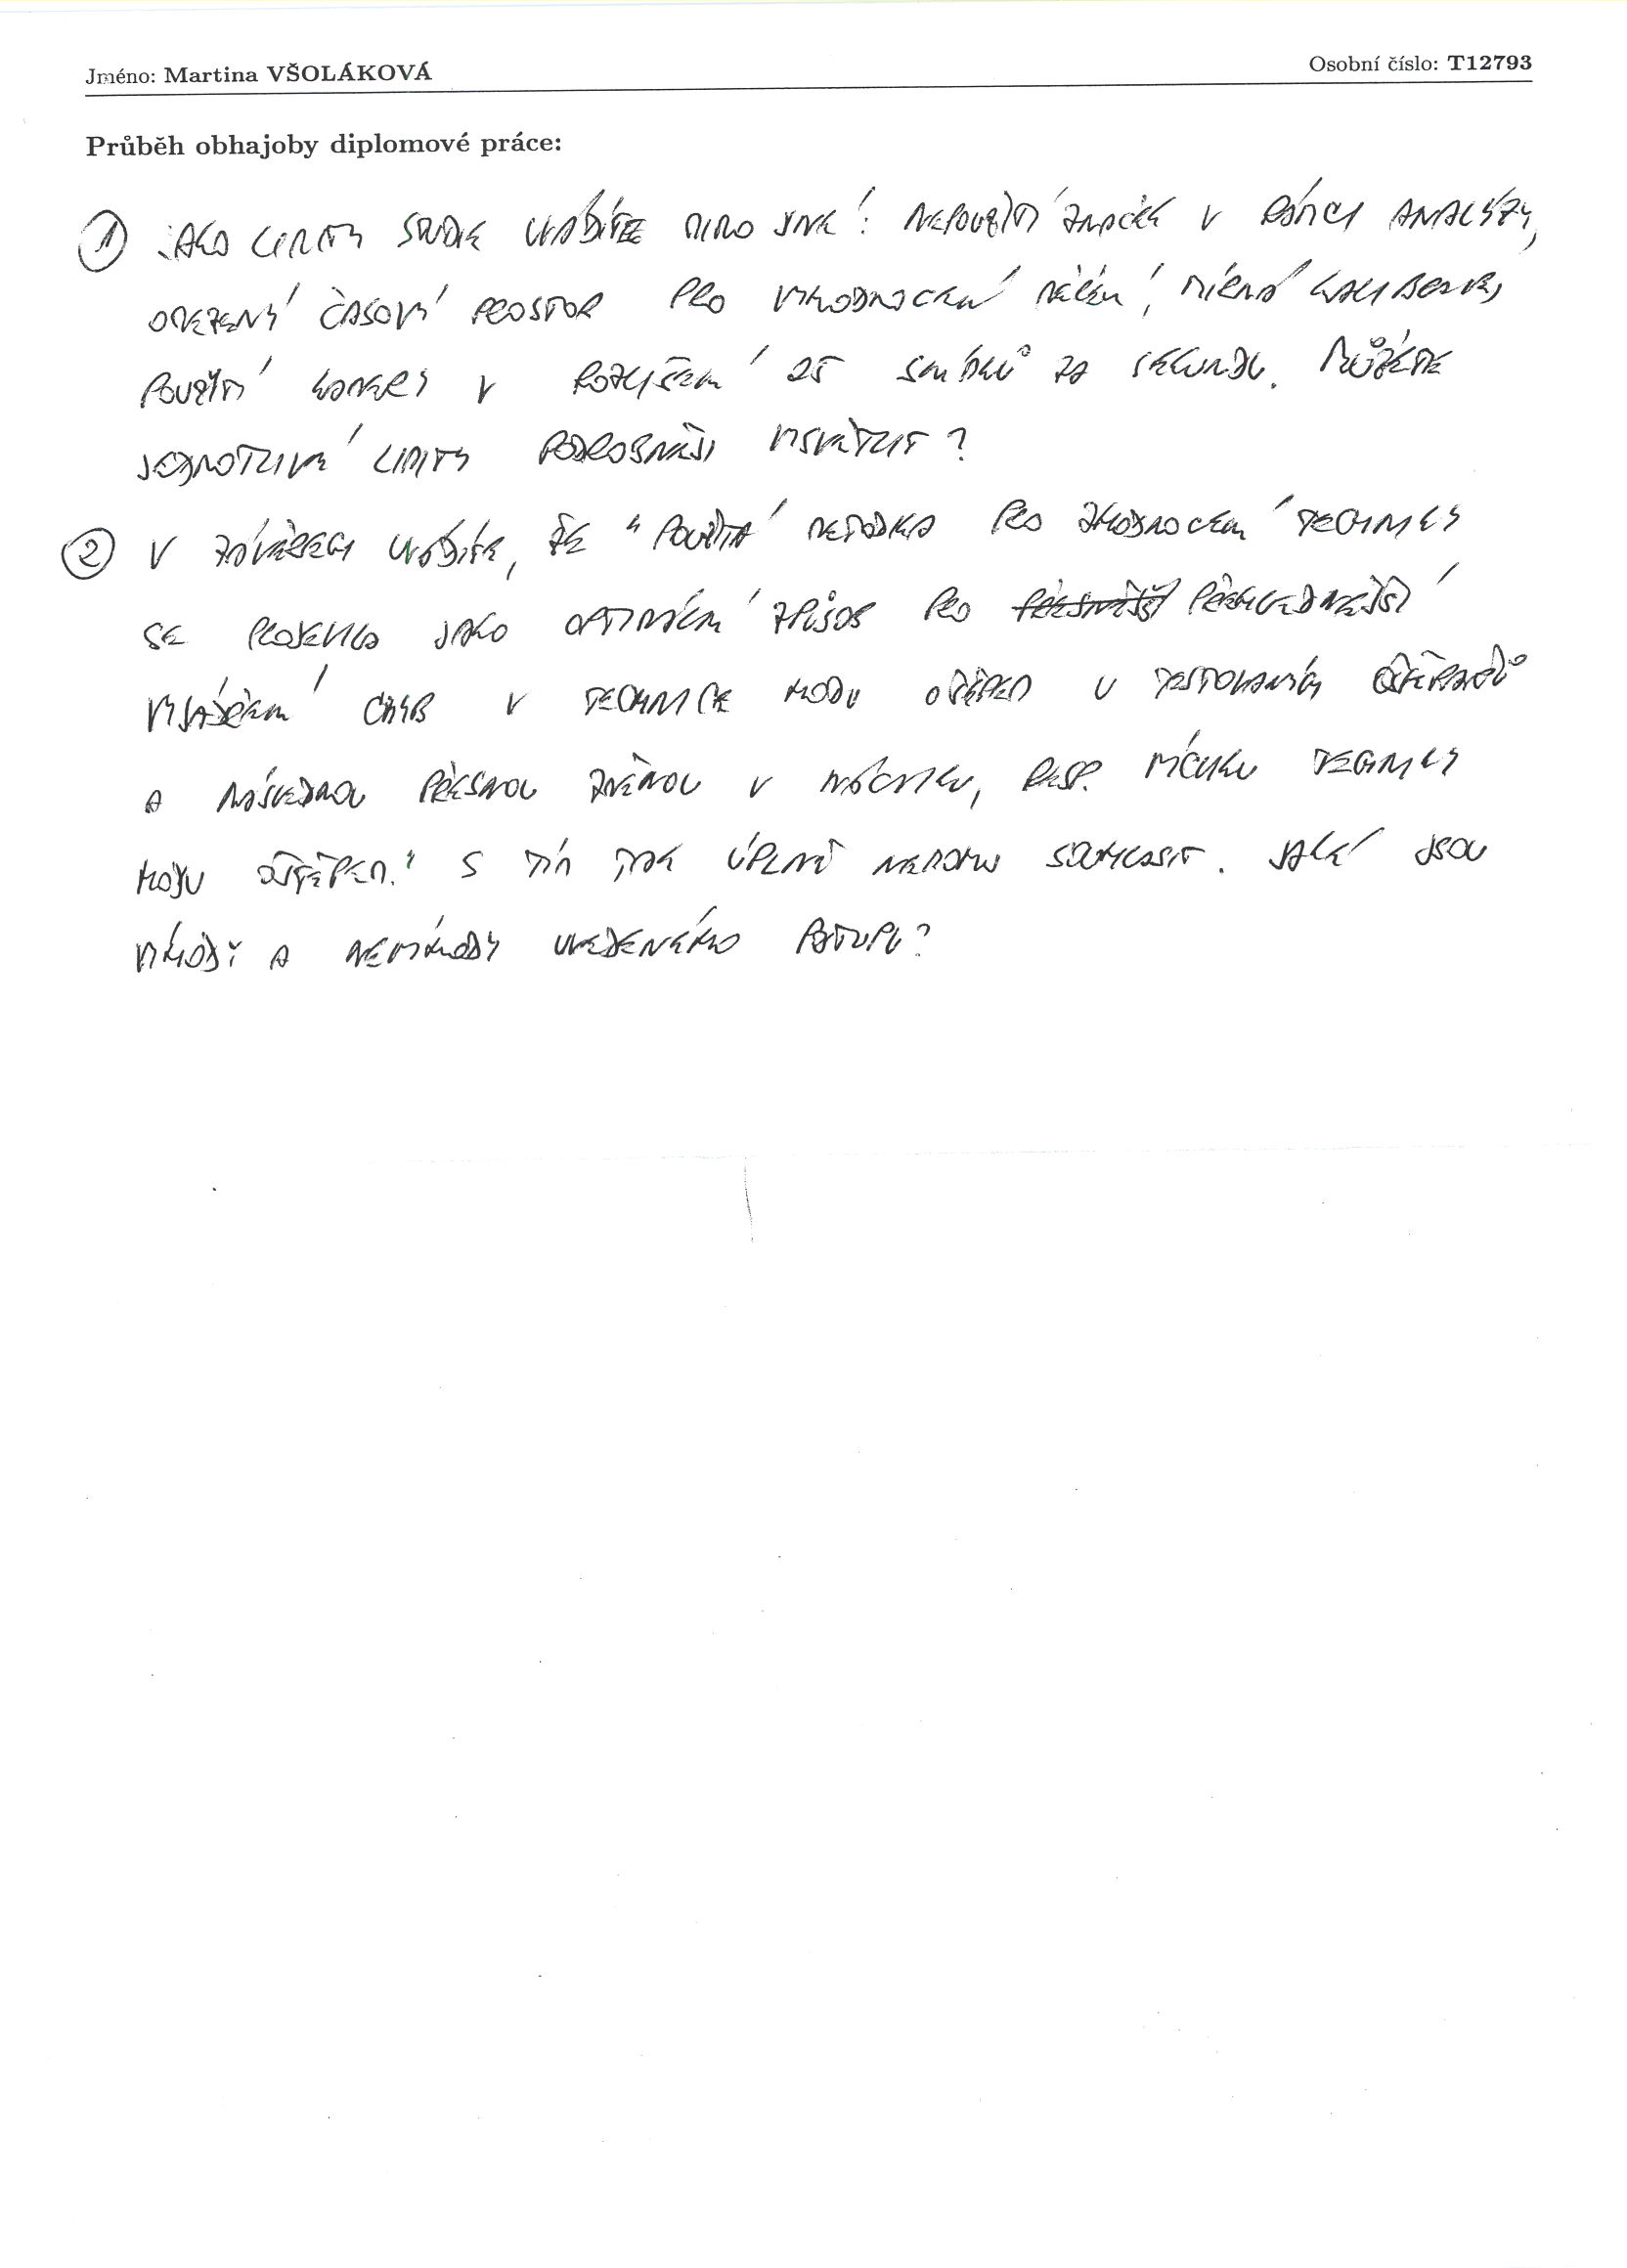 Jméno: Martina VŠOLÁKOVÁ
Osobní číslo: T12793
Průběh obhajoby diplomové práce:
① JAKO LIMITY STUDIE UVÁDÍTE MIMO JINÉ: NEPOUŽITÍ ZNAČEK V RÁMCI ANALÝZY,
OMEZENÝ ČASOVÝ PROSTOR PRO VYHODNOCENÍ MĚŘENÍ, MÍRNÁ
POUŽITÍ KAMERY V ROZLIŠENÍ 25 SNÍMKŮ ZA SEKUNDU. MŮŽETE
JEDNOTLIVÉ LIMITY PODROBNĚJI VYSVĚTLIT?
② V ZÁVĚRECH UVÁDÍTE, ŽE "POUŽITÁ METODIKA PRO ZHODNOCENÍ TECHNIKY
SE PROJEVILA JAKO OPTIMÁLNÍ ZPŮSOB PRO PŘESNĚJŠÍ PŘEHLEDNĚJŠÍ
VYJÁDŘENÍ CHYB V TECHNICE HODU OŠTĚPEM U TESTOVANÝCH OŠTĚPAŘŮ
A NÁSLEDNOU PŘESNOU ZMĚNOU V NÁCVIKU, RESP. TECHNIKY
HODU OŠTĚPEM." S TÍM TAK ÚPLNĚ NEMOHU SOUHLASIT. JAKÉ JSOU
VÝHODY A NEVÝHODY UVEDENÉHO POSTUPU?